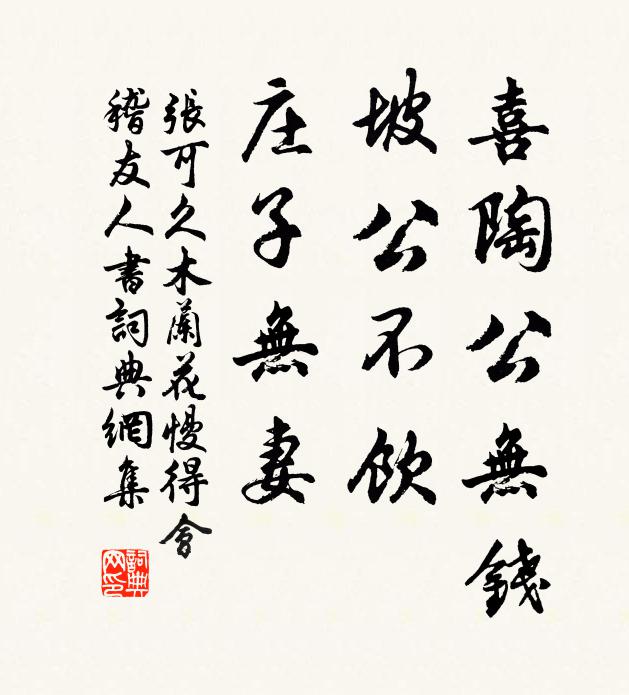 喜陶公無錢
坡公不飲
庄子無妻
張可久木蘭花慢得會
稽友人書詞典網集
詞典網印